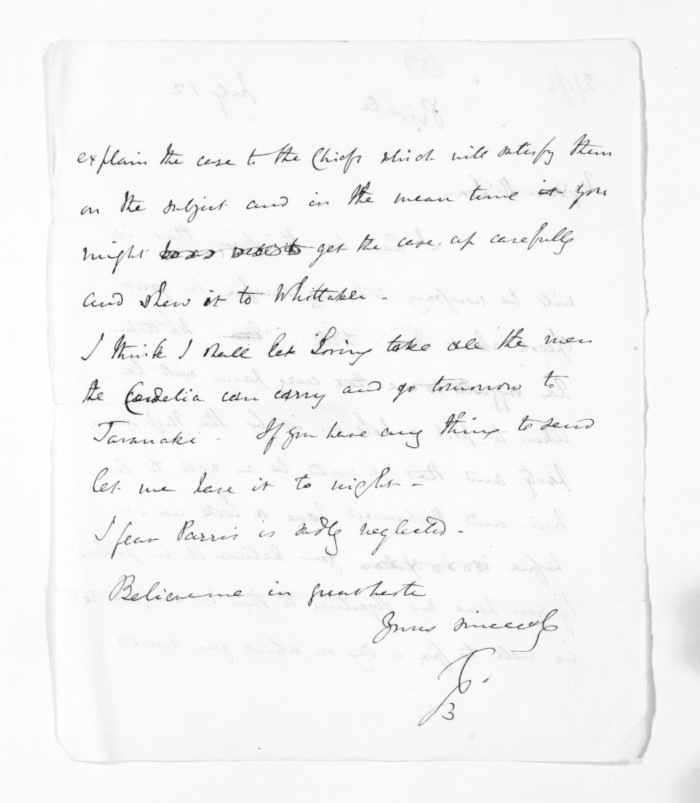 explain the case to the Chiefs which will satisfy them
on the subject and in the mean time it you
might get the case up carefully
and shew it to Whittaker -
I think I shall let Loring take all the men
the Cordelia can carry and go tomorrow to
Taranaki - If you have any thing to send
let me have it to night -
I fear Parris is sadly neglected -
Believe me in great haste
Yours sincerely
TGB